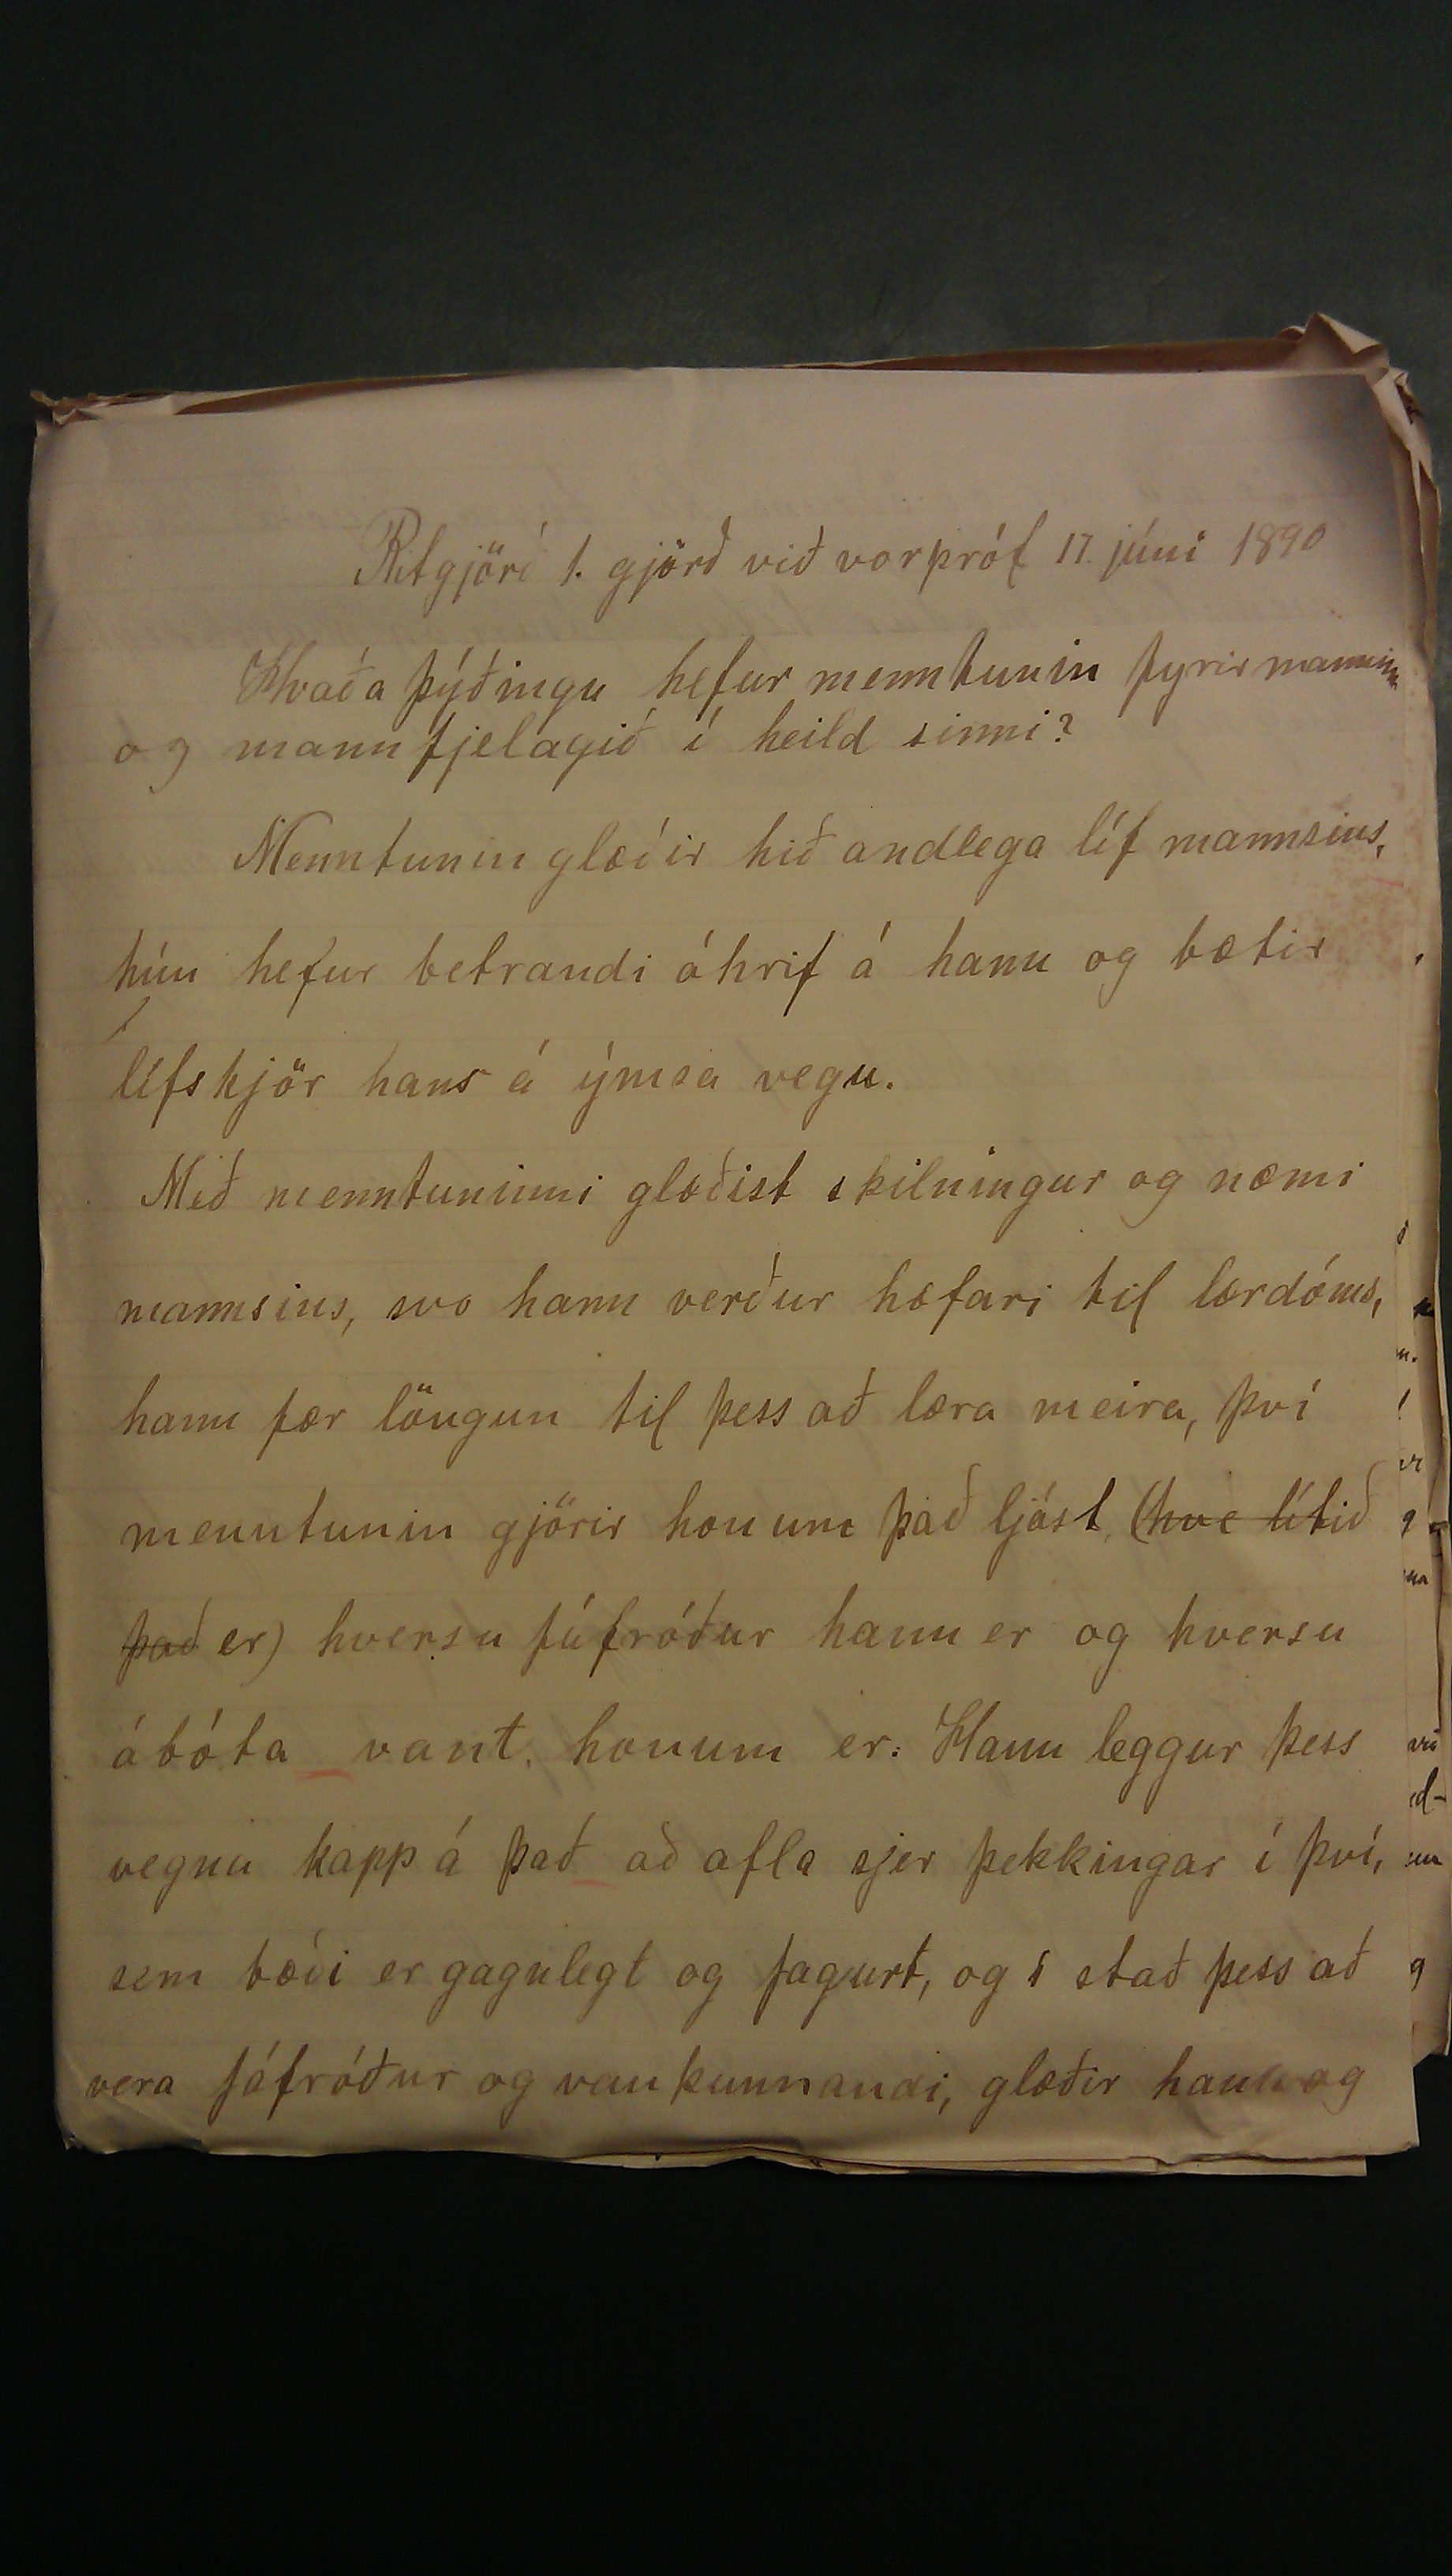 Ritgjörð 1. gjörð við vorpróf 17. júní 1890
Hvaða þýðingu hefur menntunin fyrir manninn
og mannfjelagið í heild sinni?
Menntunin glæðir hið andlega líf mannsins,
hún hefur betrandi áhrif á hann og bætir
lífskjör hans á ýmsa vegu.
Með menntuninni glæðist skilningur og næmi
mannsins, svo hann verður hæfari til lærdóms,
hann fær löngun til þess að læra meira, því
menntunin gjörir honum það ljóst, (hve lítið
það er) hversu fáfróður hann er og hversu
ábóta vant honum er. Hann leggur þess
vegna kapp á það að afla sjer þekkingar í því,
sem bæði er gagnlegt og fagurt, og í stað þess að
vera fáfróður og vankunnandi, glæðir hann og